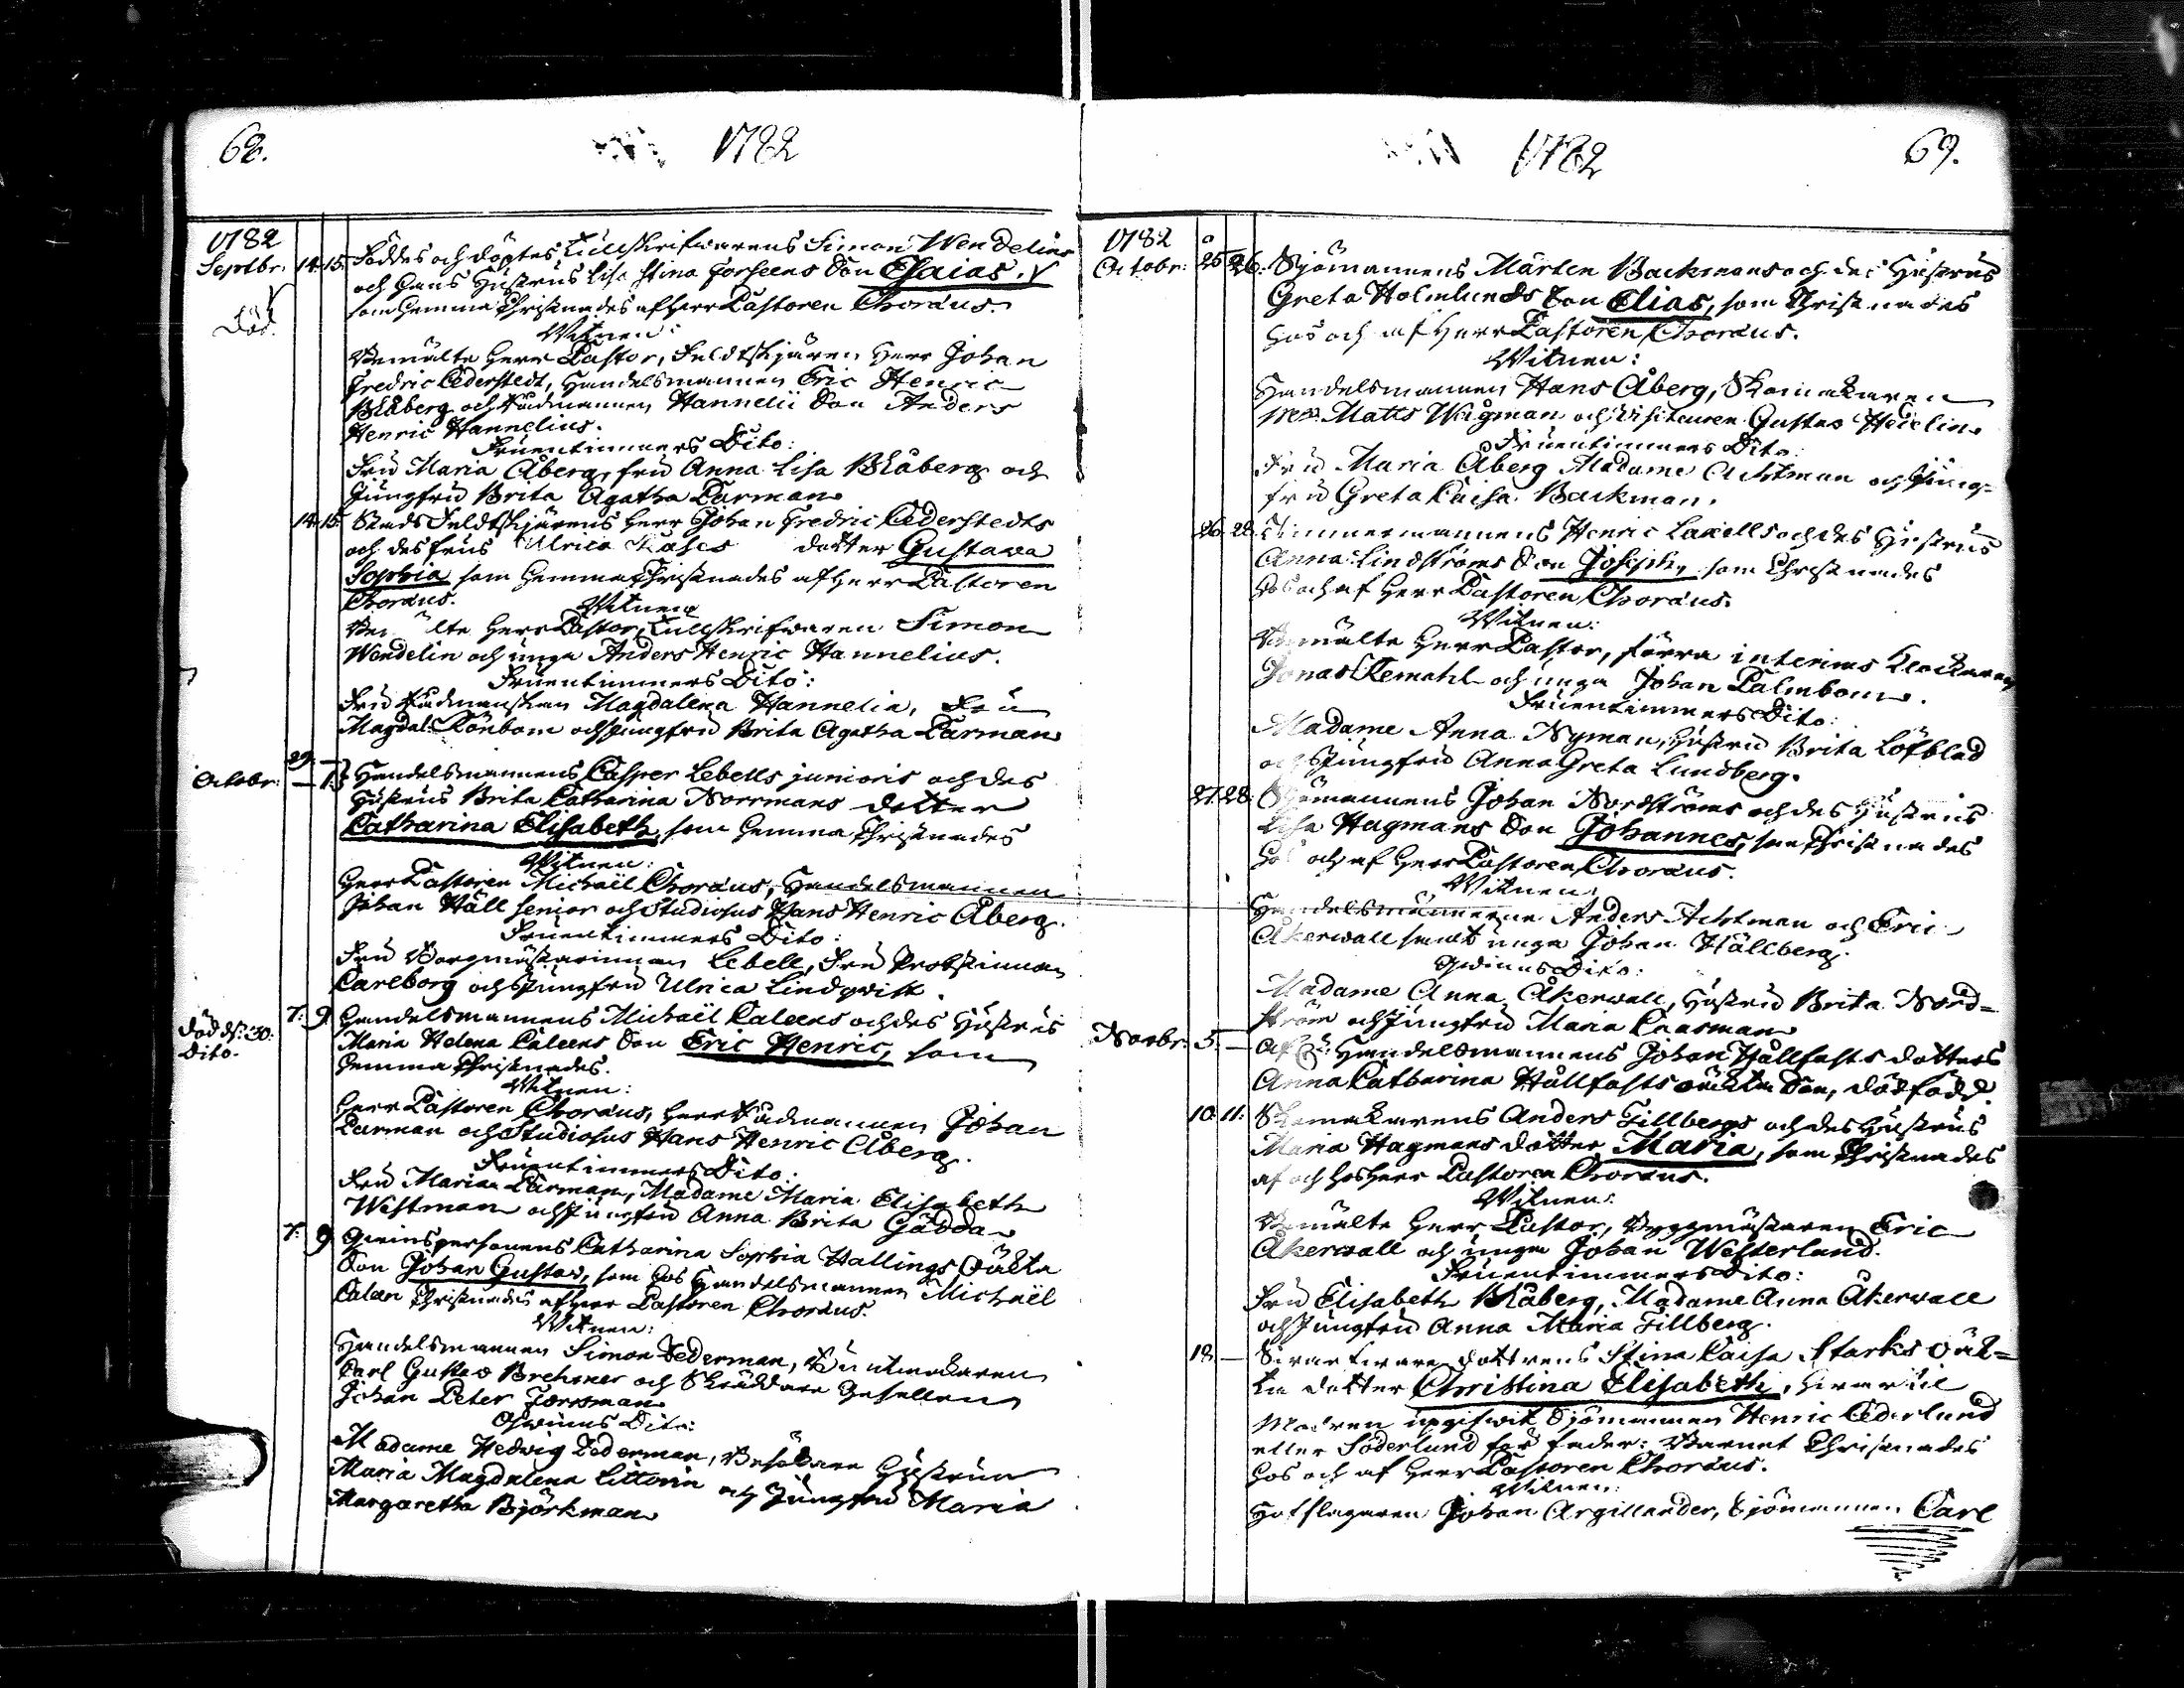 68.
1782
1782
Septbr. 14. 15. Föddes och döptes Tullskrifwarens Simon Wendelins
och hans Hustrus Lisa Stina Forseens Son Esaias.
Död. som hemma Christnades af Herr Pastoren Choræus.
Witnen:
Bemälte Herr Pastor, Feldtskjären Herr Johan
Fredric Cederstedt, Handelsmannen Eric Henric
Blåberg och Rådmannen Hannelii Son Anders
Henric Hannelius.
Fruentimmers Dito:
Fru Maria Åberg, fru Anna Lisa Blåberg och
Jungfru Brita Agatha Parman
14. 15. Stads Feldtskjärens Herr Johan Fredric Cederstedts
och des frus Ulrica dotter Gustava
Sophia som hemma Christnades af Herr Pastoren
Choræus.
Witnen
Bemälte Herr Pastor, Tullskrifwaren Simon
Wendelin och unga Anders Henric Hannelius.
Fruentimmers Dito:
Fru Rådmanskan Magdalena Hannelia, Fru
Magdal: Rönbom och Jungfru Brita Agatha Parman
29. —
Octobr: — 1. Handelsmannens Casper Lebells junioris och des
Hustrus Brita Catharina Norrmans dotter
Catharina Elisabeth, som hemma Christnades
Witnen:
Herr Pastoren Michaël Choræus, Handelsmannen
Johan Häll senior och Studiosus Hans Henric Åberg.
Fruentimmers Dito:
Fru Borgmästarinnan Lebell, Fru Probstinnan
Carlborg och Jungfru Ulrica Lindqwist.
7: 9 Handelsmannens Michaël Caleens och des Hustrus
död d: 30:
Dito.
Maria Helena Caleens Son Eric Henric, som
hemma Christnades.
Witnen:
Herr Pastoren Choræus, Herr Rådmannen Johan
Parman och Studiosus Hans Henric Åberg.
Fruentimmers Dito:
Fru Maria Parman, Madame Maria Elisabeth
Westman och Jungfru Anna Brita Gädda
7: 9 Qwinspersonens Catharina Sophia Hallings Oäkta
Son Johan Gustav, som hos Handelsmannen Michaël
Calen Christnades af Herr Pastoren Choræus.
Witnen:
Handelsmannen Simon Federman, Buntmakaren
Carl Gustav Brehmer och Skräddare Gesellen
Johan Peter Forssman
Qwinns Dito:
Madame Hedvig Federman, Besökare Hustrun
Maria Magdalena Littorin och Jungfru Maria
Margaretha Björkman
1782
69.
1782
Octobr: 25 26: Sjömannens Mårten Backmans och des Hustrus
Greta Holmlunds Son Elias, som Christnades
hos och af Herr Pastoren Choræus.
Witnen:
Handelsmannen Hans Åberg, Skomakaren
Mr Matts Wägman och Visiteuren Gustav Hedelin
Fruentimmers Dito:
Fru Maria Åberg Madame Achtman och Jung=
fru Greta Caisa Backman.
26. 28. Timmermannens Henric Laxells och des Hustrus
Anna Lindströms Son Joseph, som Christnades
hos och af Herr Pastoren Choræus.
Witnen:
Bemälte Herr Pastor, förra interims Klockaren
Jonas Remahl och unga Johan Palmbom.
Fruentimmers Dito:
Madame Anna Nyman, Hustru Brita Löfblad
och Jungfru Anna Greta Lundberg.
27. 28. Sjömannens Johan Nordströms och des Hustrus
Lisa Hagmans Son Johannes, som Christnades
hos och af Herr Pastoren Choræus.
Witnen:
Handelsmännerne Anders Achtman och Eric
Åkerwall samt unga Johan Hällberg.
Qwinns Dito:
Madame Anna Åkerwall, Hustru Brita Nord=
ström och Jungfru Maria Caasman
Novbr: 5. — Af Handelsmannens Johan Hållfasts dotters
Anna Catharina Hållfasts oäkta Son, dödfödd.
10. 11: Skomakarens Anders Tillbergs och des Hustrus
Maria Hagmans dotter Maria, som Christnades
af och hos Herr Pastoren Choræus.
Witnen:
Bemälte Herr Pastor, Byggmästaren Eric
Åkerwall och unga Johan Westerlund.
Fruentimmers Dito:
Fru Elisabeth Blåberg, Madame Anna Åkerwall
och Jungfru Anna Maria Tillberg.
18. — Swarfware dottrens Stina Caisa Starks oäk=
ta dotter Christina Elisabeth, hwartil
Modren upgifwit Sjömannen Henric Cederlund
eller Söderlund för fader: Barnet Christnades
hos och af Herr Pastoren Choræus.
Witnen:
Hofslagaren Johan Argillander, Sjömannen Carl